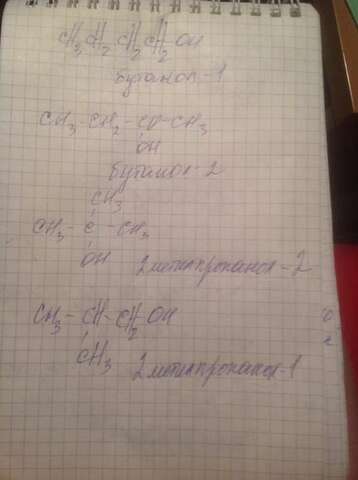 CH₃ CH₂ CH₂ CH₂ OH
бутанол-1
CH₃-CH₂-CO-CH₃
OH
бутанол-2
CH₃
CH₃-C-CH₃
OH 2метилпропанол-2
CH₃-CH-CH₂ OH
CH₃ 2метилпропанол-1